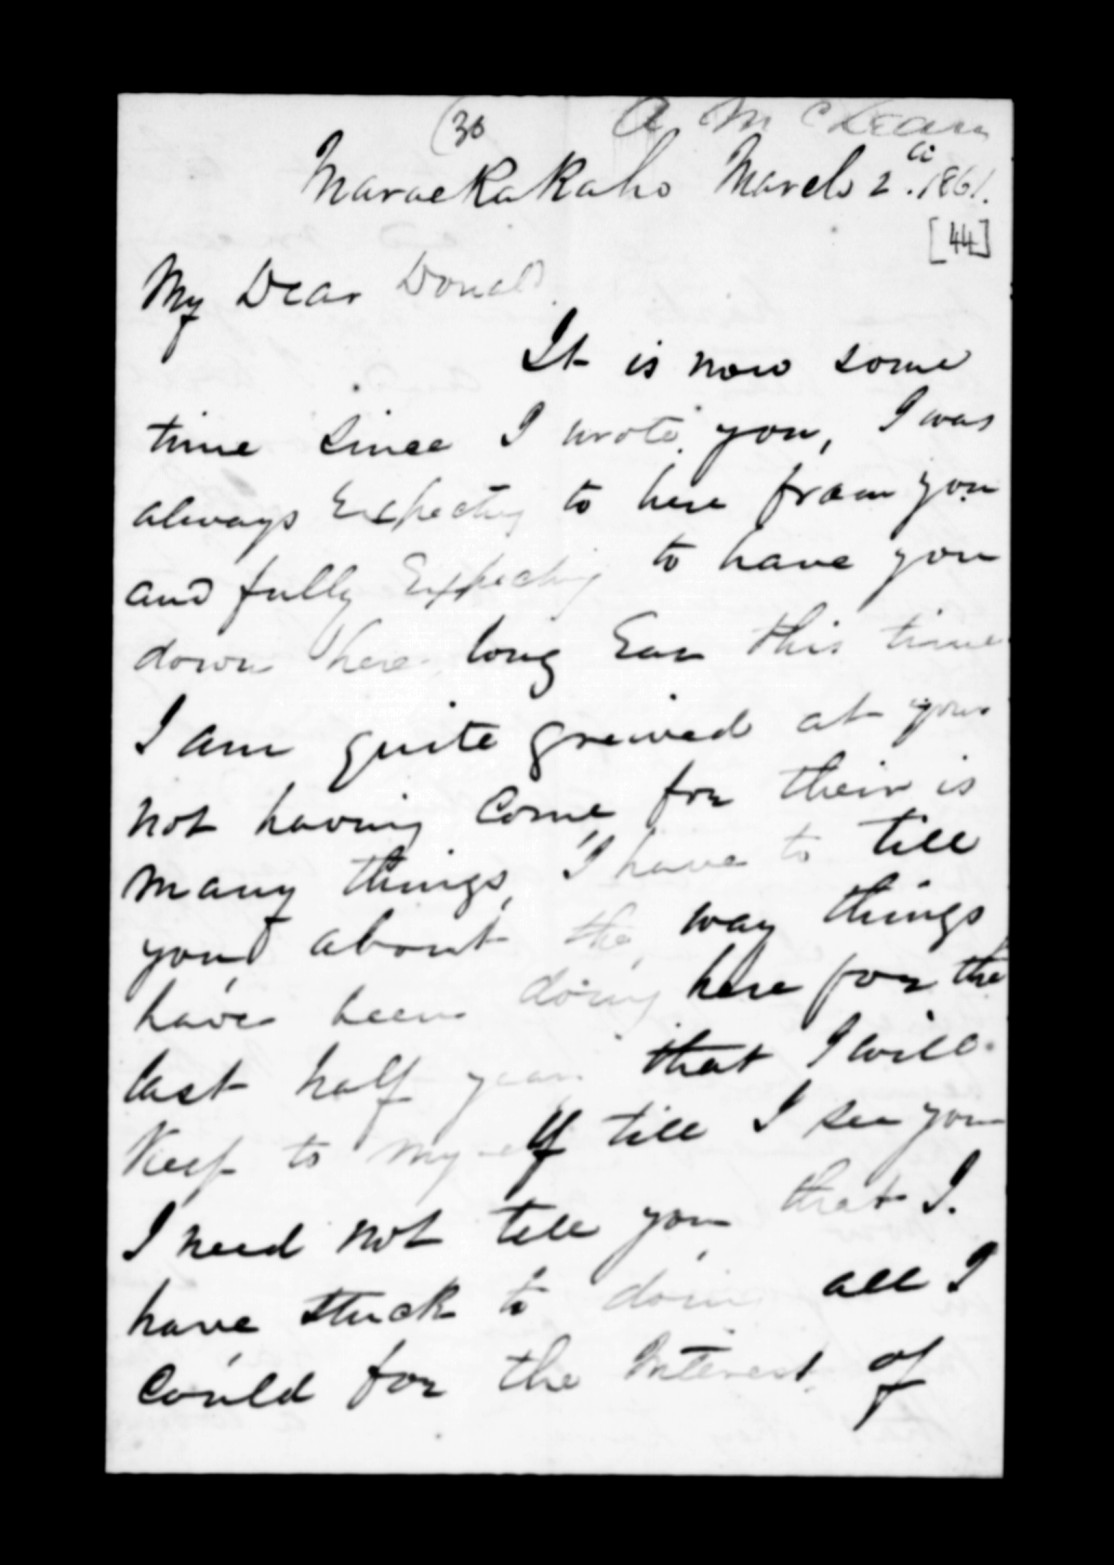 (36 A McLean
Maraekakaho March 2d. 1861.
[44]
My Dear Donald
It is now some
time since I wrote you, I was
always Expecting to here from you
and fully Expecting to have you
down here long Ear this time
I am quite greived at your
not having Come for their is
many things, I have to till
you about the way things
have been doing here for the
last half year that I will
Keep to myself till I see you
I need not tell you that I.
have stuck to doing all I
Could for the Interest of